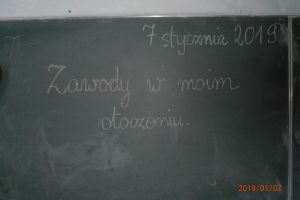 7 stycznia 2019
Zawody w moim
otoczeniu.
2019/01/07